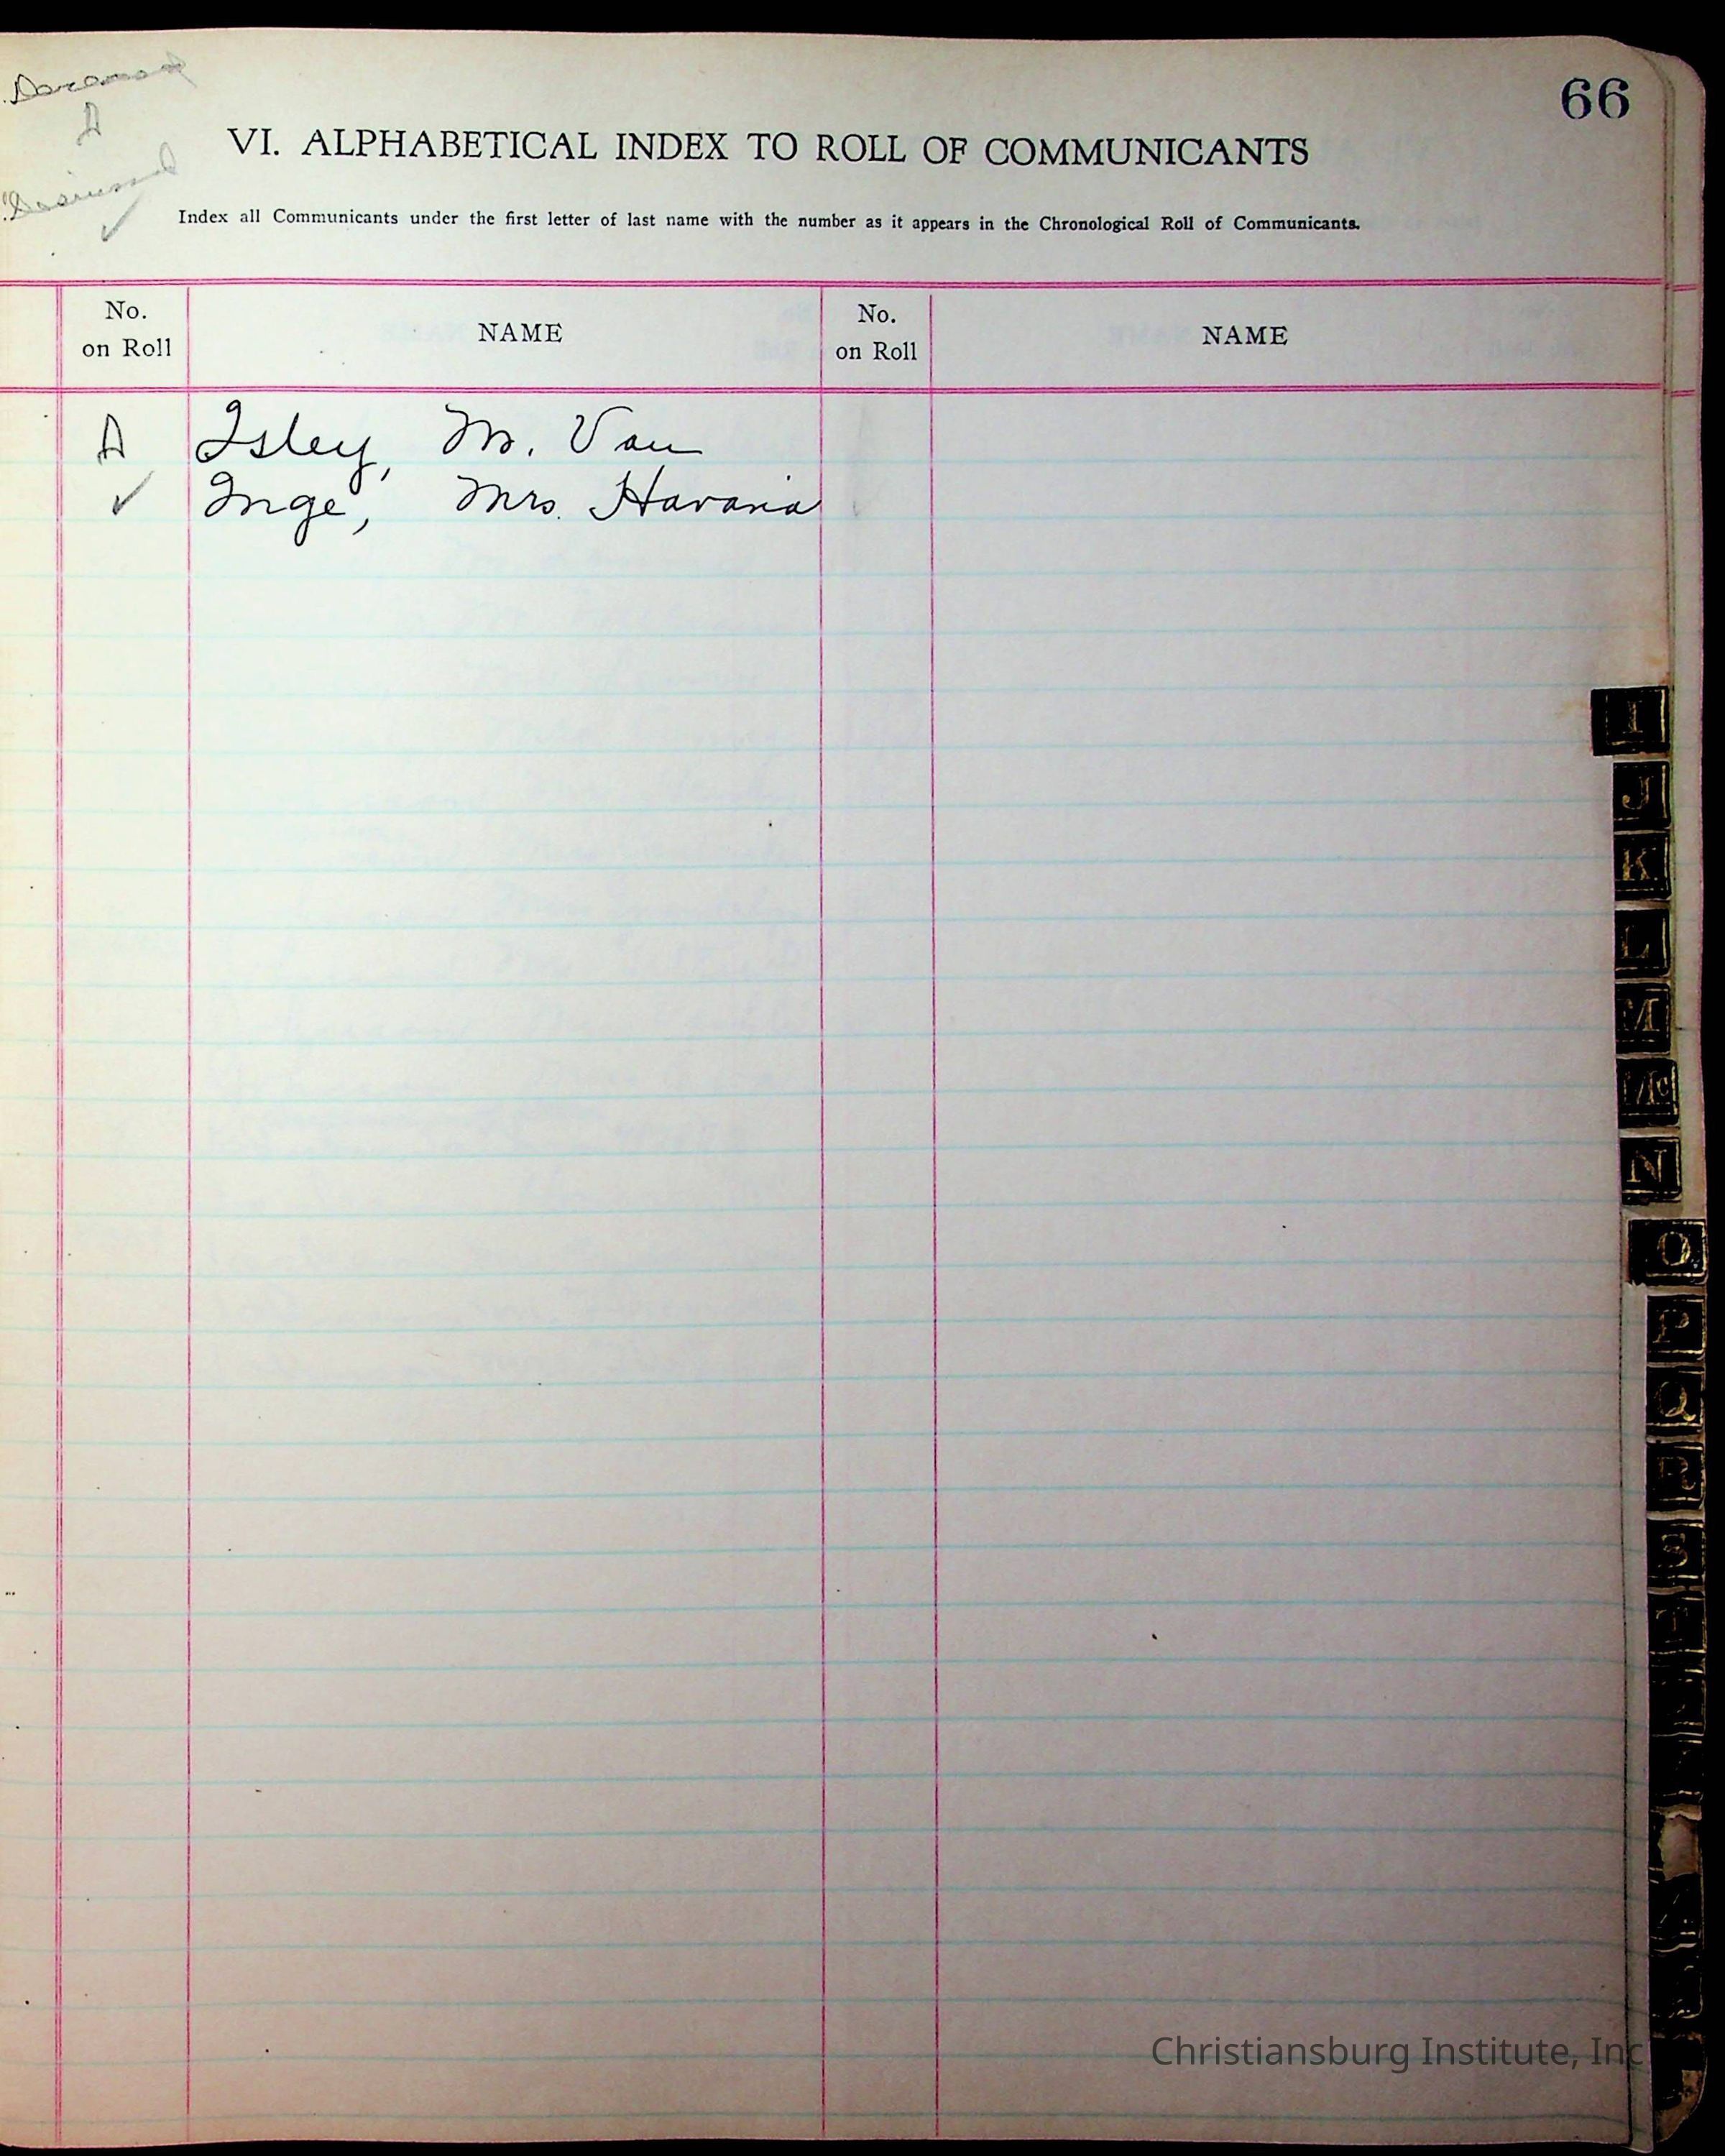 66
D
VI. ALPHABETICAL INDEX TO ROLL OF COMMUNICANTS
✓
Index all Communicants under the first letter of last name with the number as it appears in the Chronological Roll of Communicants.
No. on Roll NAME No. on Roll NAME
D Isley, M. Van
✓ Inge, Mrs. Havana
I
J
K
L
M
Mc
N
O
P
Q
R
S
T
Christiansburg Institute, Inc